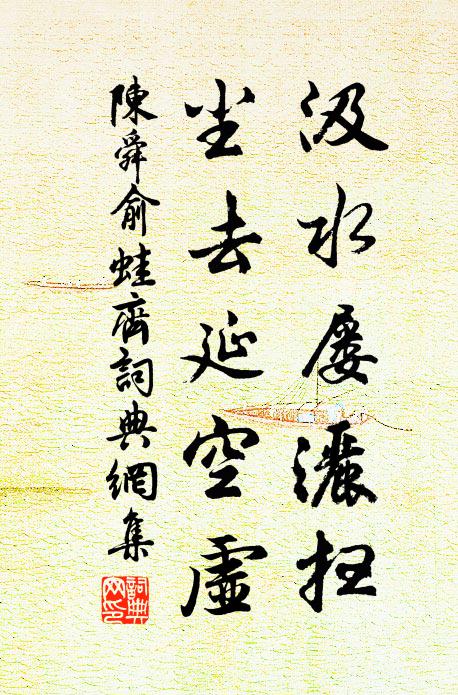 汲水屡灑扫
尘去延空虚
陳舜俞蛙齋詞典網集
詞典网印